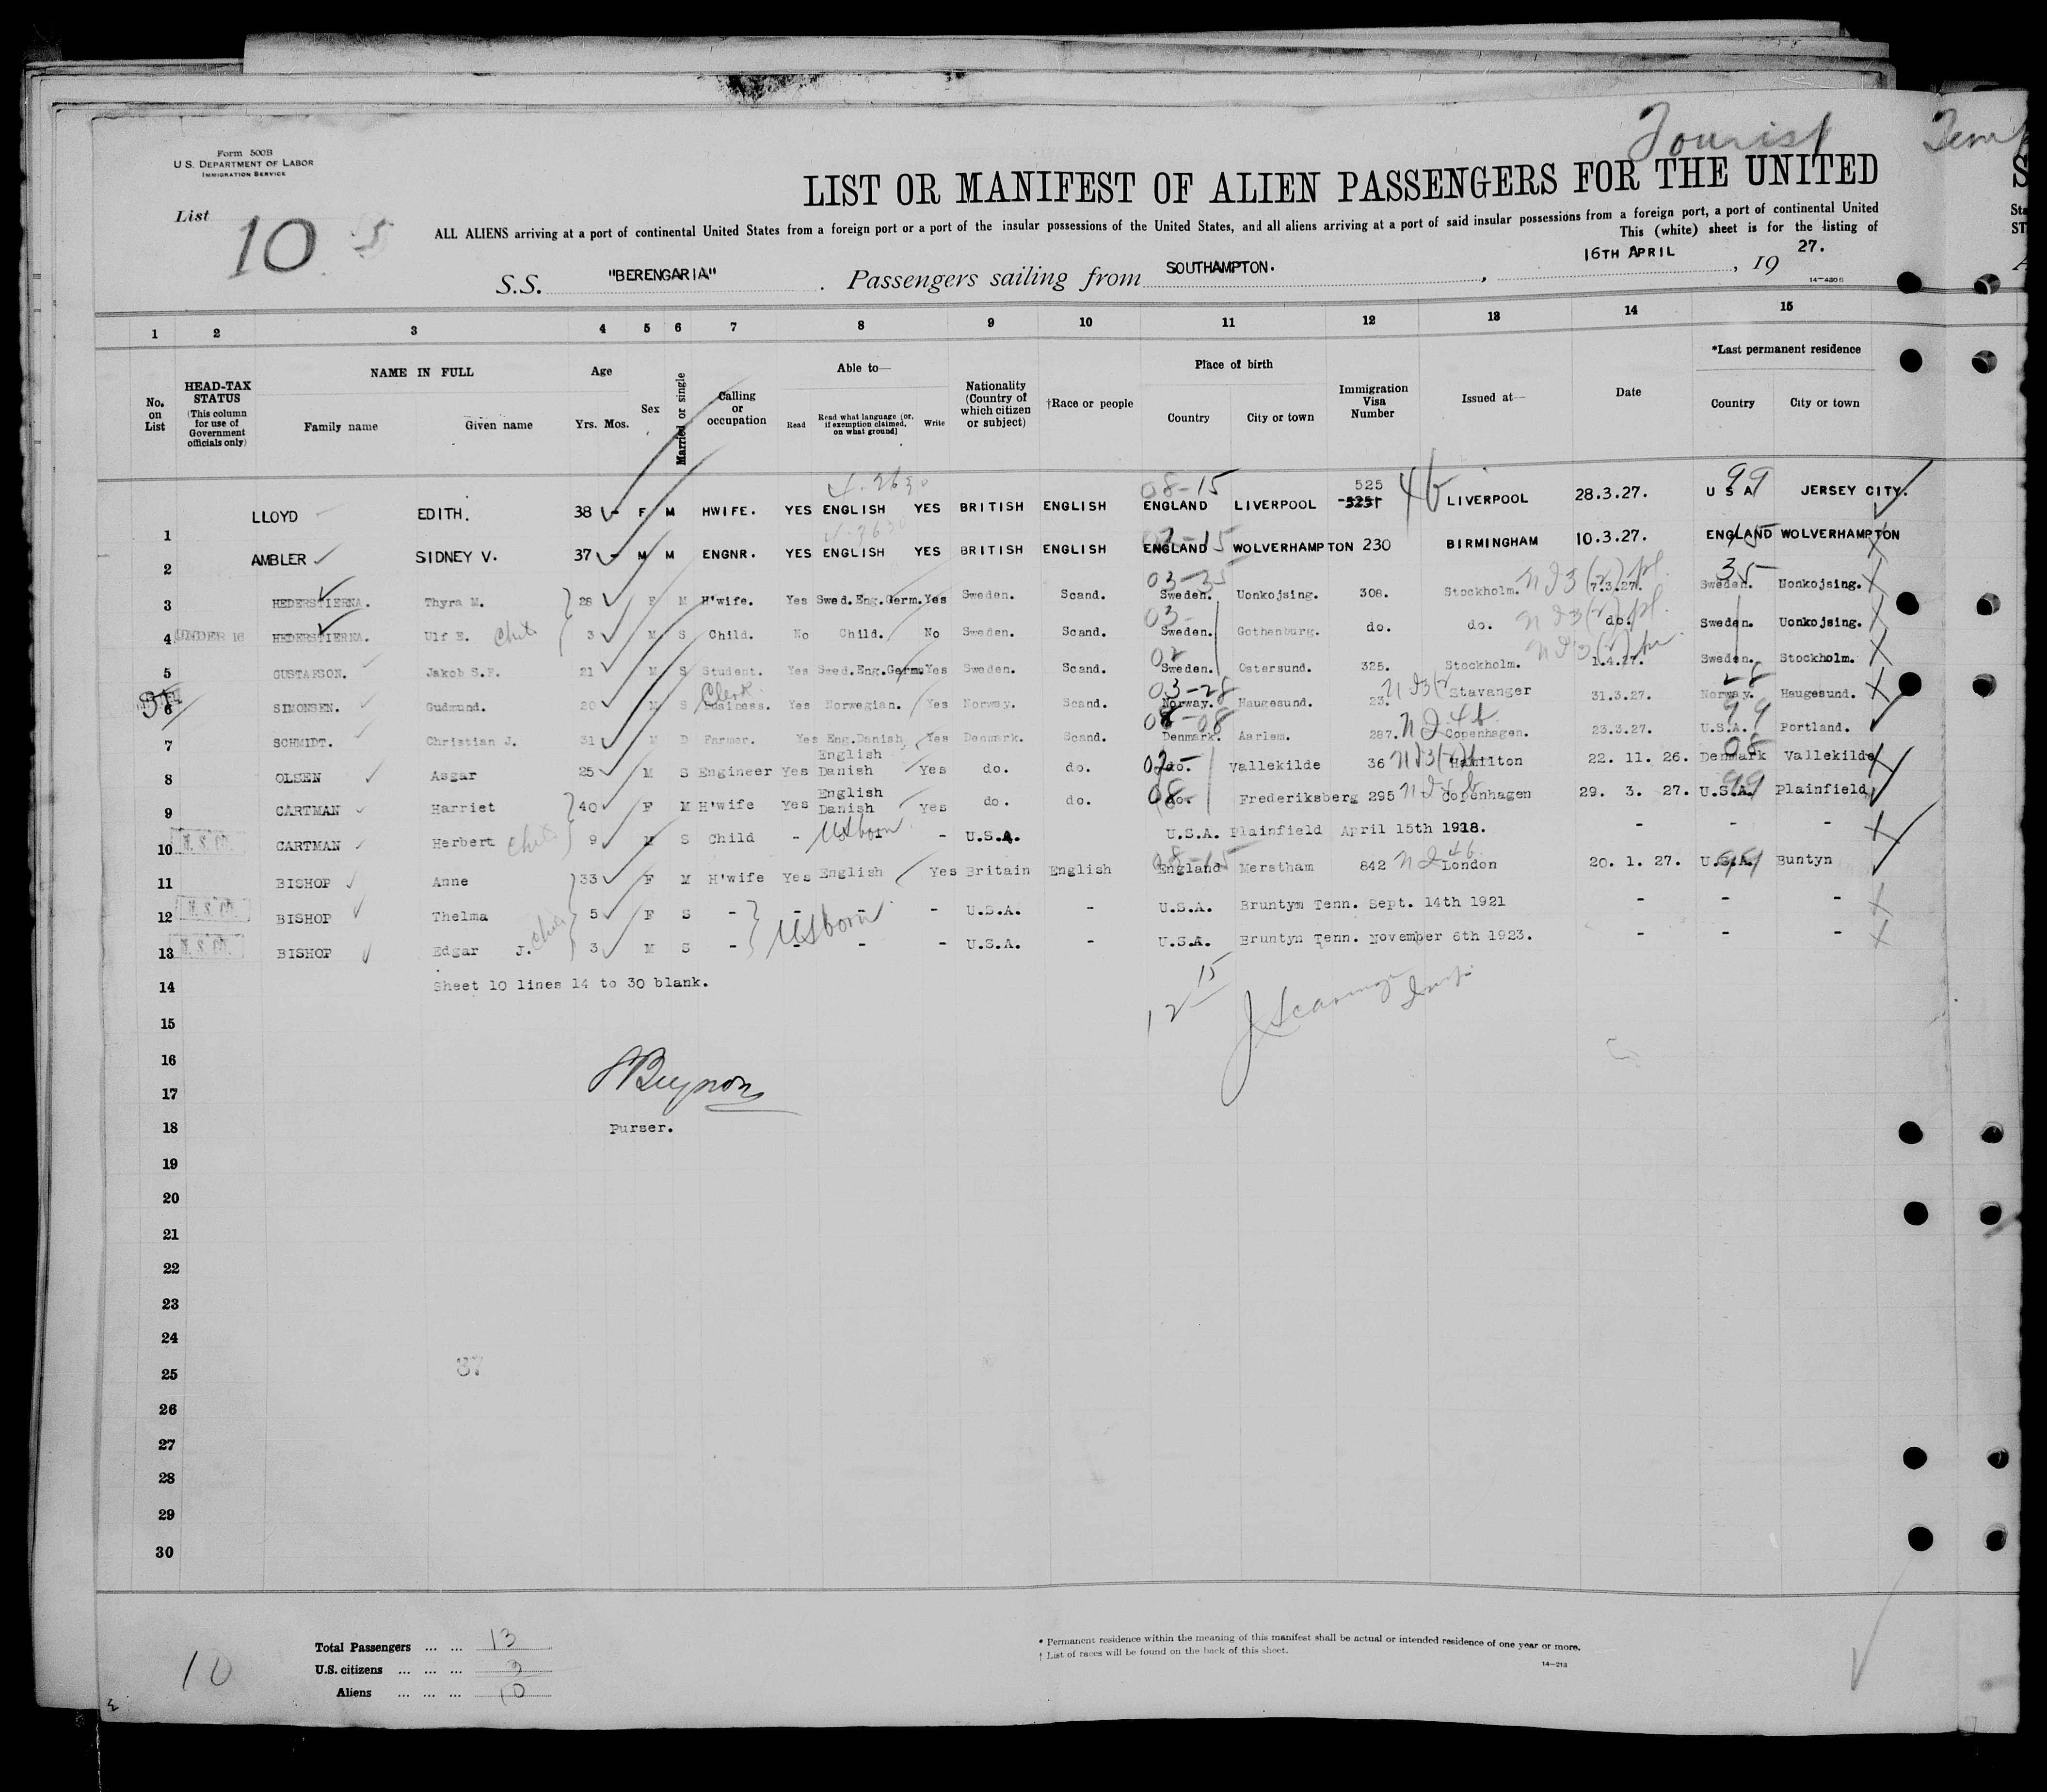 Tourist
Form 500B
U.S. DEPARTMENT OF LABOR
IMMIGRATION SERVICE
LIST OR MANIFEST OF ALIEN PASSENGERS FOR THE UNITED
List 10 5
ALL ALIENS arriving at a port of continental United States from a foreign port or a port of the insular possessions of the United States, and all aliens arriving at a port of said insular possessions from a foreign port, a port of continental United
This (white) sheet is for the listing of
S.S. "BERENGARIA" . Passengers sailing from SOUTHAMPTON. , 16TH APRIL , 19 27.
14—430B
1 2 3 4 5 6 7 8 9 10 11 12 13 14 15
No. on List
HEAD-TAX STATUS (This column for use of Government officials only)
NAME IN FULL Family name Given name
Age Yrs. Mos.
Sex
Married or single
Calling or occupation
Able to— Read Read what language (or, if exemption claimed, on what ground) Write
Nationality (Country of which citizen or subject)
†Race or people
Place of birth Country City or town
Immigration Visa Number
Issued at—
Date
*Last permanent residence Country City or town
08-15 525 4b 99
1 LLOYD EDITH. 38 - F M HWIFE. YES ENGLISH YES BRITISH ENGLISH ENGLAND LIVERPOOL 5251 LIVERPOOL 28.3.27. U S A JERSEY CITY.
2 AMBLER SIDNEY V. 37 - M M ENGNR. YES ENGLISH YES BRITISH ENGLISH ENGLAND WOLVERHAMPTON 230 BIRMINGHAM 10.3.27. ENGLAND WOLVERHAMPTON
03-35 35
3 HEDERSTIERNA. Thyra M. 28 F M H'wife. Yes Swed.Eng.Germ. Yes Sweden. Scand. Sweden. Uonkojsing. 308. Stockholm. 7.3.27. Sweden. Uonkojsing.
4 UNDER 16 HEDERSTIERNA. Ulf E. 3 M S Child. No Child. No Sweden. Scand. Sweden. Gothenburg. do. do. do. Sweden. Uonkojsing.
5 GUSTAFSON. Jakob S.F. 21 M S Student. Yes Swed.Eng.Germ. Yes Sweden. Scand. Sweden. Ostersund. 325. Stockholm. 1.4.27. Sweden. Stockholm.
Clerk 03-28 28
6 SIMONSEN. Gudmund. 20 M S Business. Yes Norwegian. Yes Norway. Scand. Norway. Haugesund. 23. Stavanger 31.3.27. Norway. Haugesund.
08-08 4b 99
7 SCHMIDT. Christian J. 31 M D Farmer. Yes Eng.Danish, Yes Denmark. Scand. Denmark. Aarlem. 287. Copenhagen. 23.3.27. U.S.A. Portland.
8 OLSEN Asgar 25 M S Engineer Yes English Danish Yes do. do. do. Vallekilde 36 Hamilton 22. 11. 26. Denmark Vallekilde
9 CARTMAN Harriet 40 F M H'wife Yes English Danish Yes do. do. do. Frederiksberg 295 Copenhagen 29. 3. 27. U.S.A. Plainfield
10 CARTMAN Herbert 9 M S Child - US born - U.S.A. U.S.A. Plainfield April 15th 1918. - - -
11 BISHOP Anne 33 F M H'wife Yes English Yes Britain English England Merstham 842 London 20. 1. 27. U.S.A. Buntyn
12 BISHOP Thelma 5 F S - - - - U.S.A. - U.S.A. Bruntym Tenn. Sept. 14th 1921 - - -
US born
13 BISHOP Edgar J. 3 M S - - - - U.S.A. - U.S.A. Bruntym Tenn. November 6th 1923. - - -
14 Sheet 10 lines 14 to 30 blank.
15
16
17
18 Purser.
19
20
21
22
23
24
37
25
26
27
28
29
30
Total Passengers ... ... 13
U.S. citizens ... ... ... 3
Aliens ... ... ... 10
10
* Permanent residence within the meaning of this manifest shall be actual or intended residence of one year or more.
† List of races will be found on the back of this sheet.
14—213